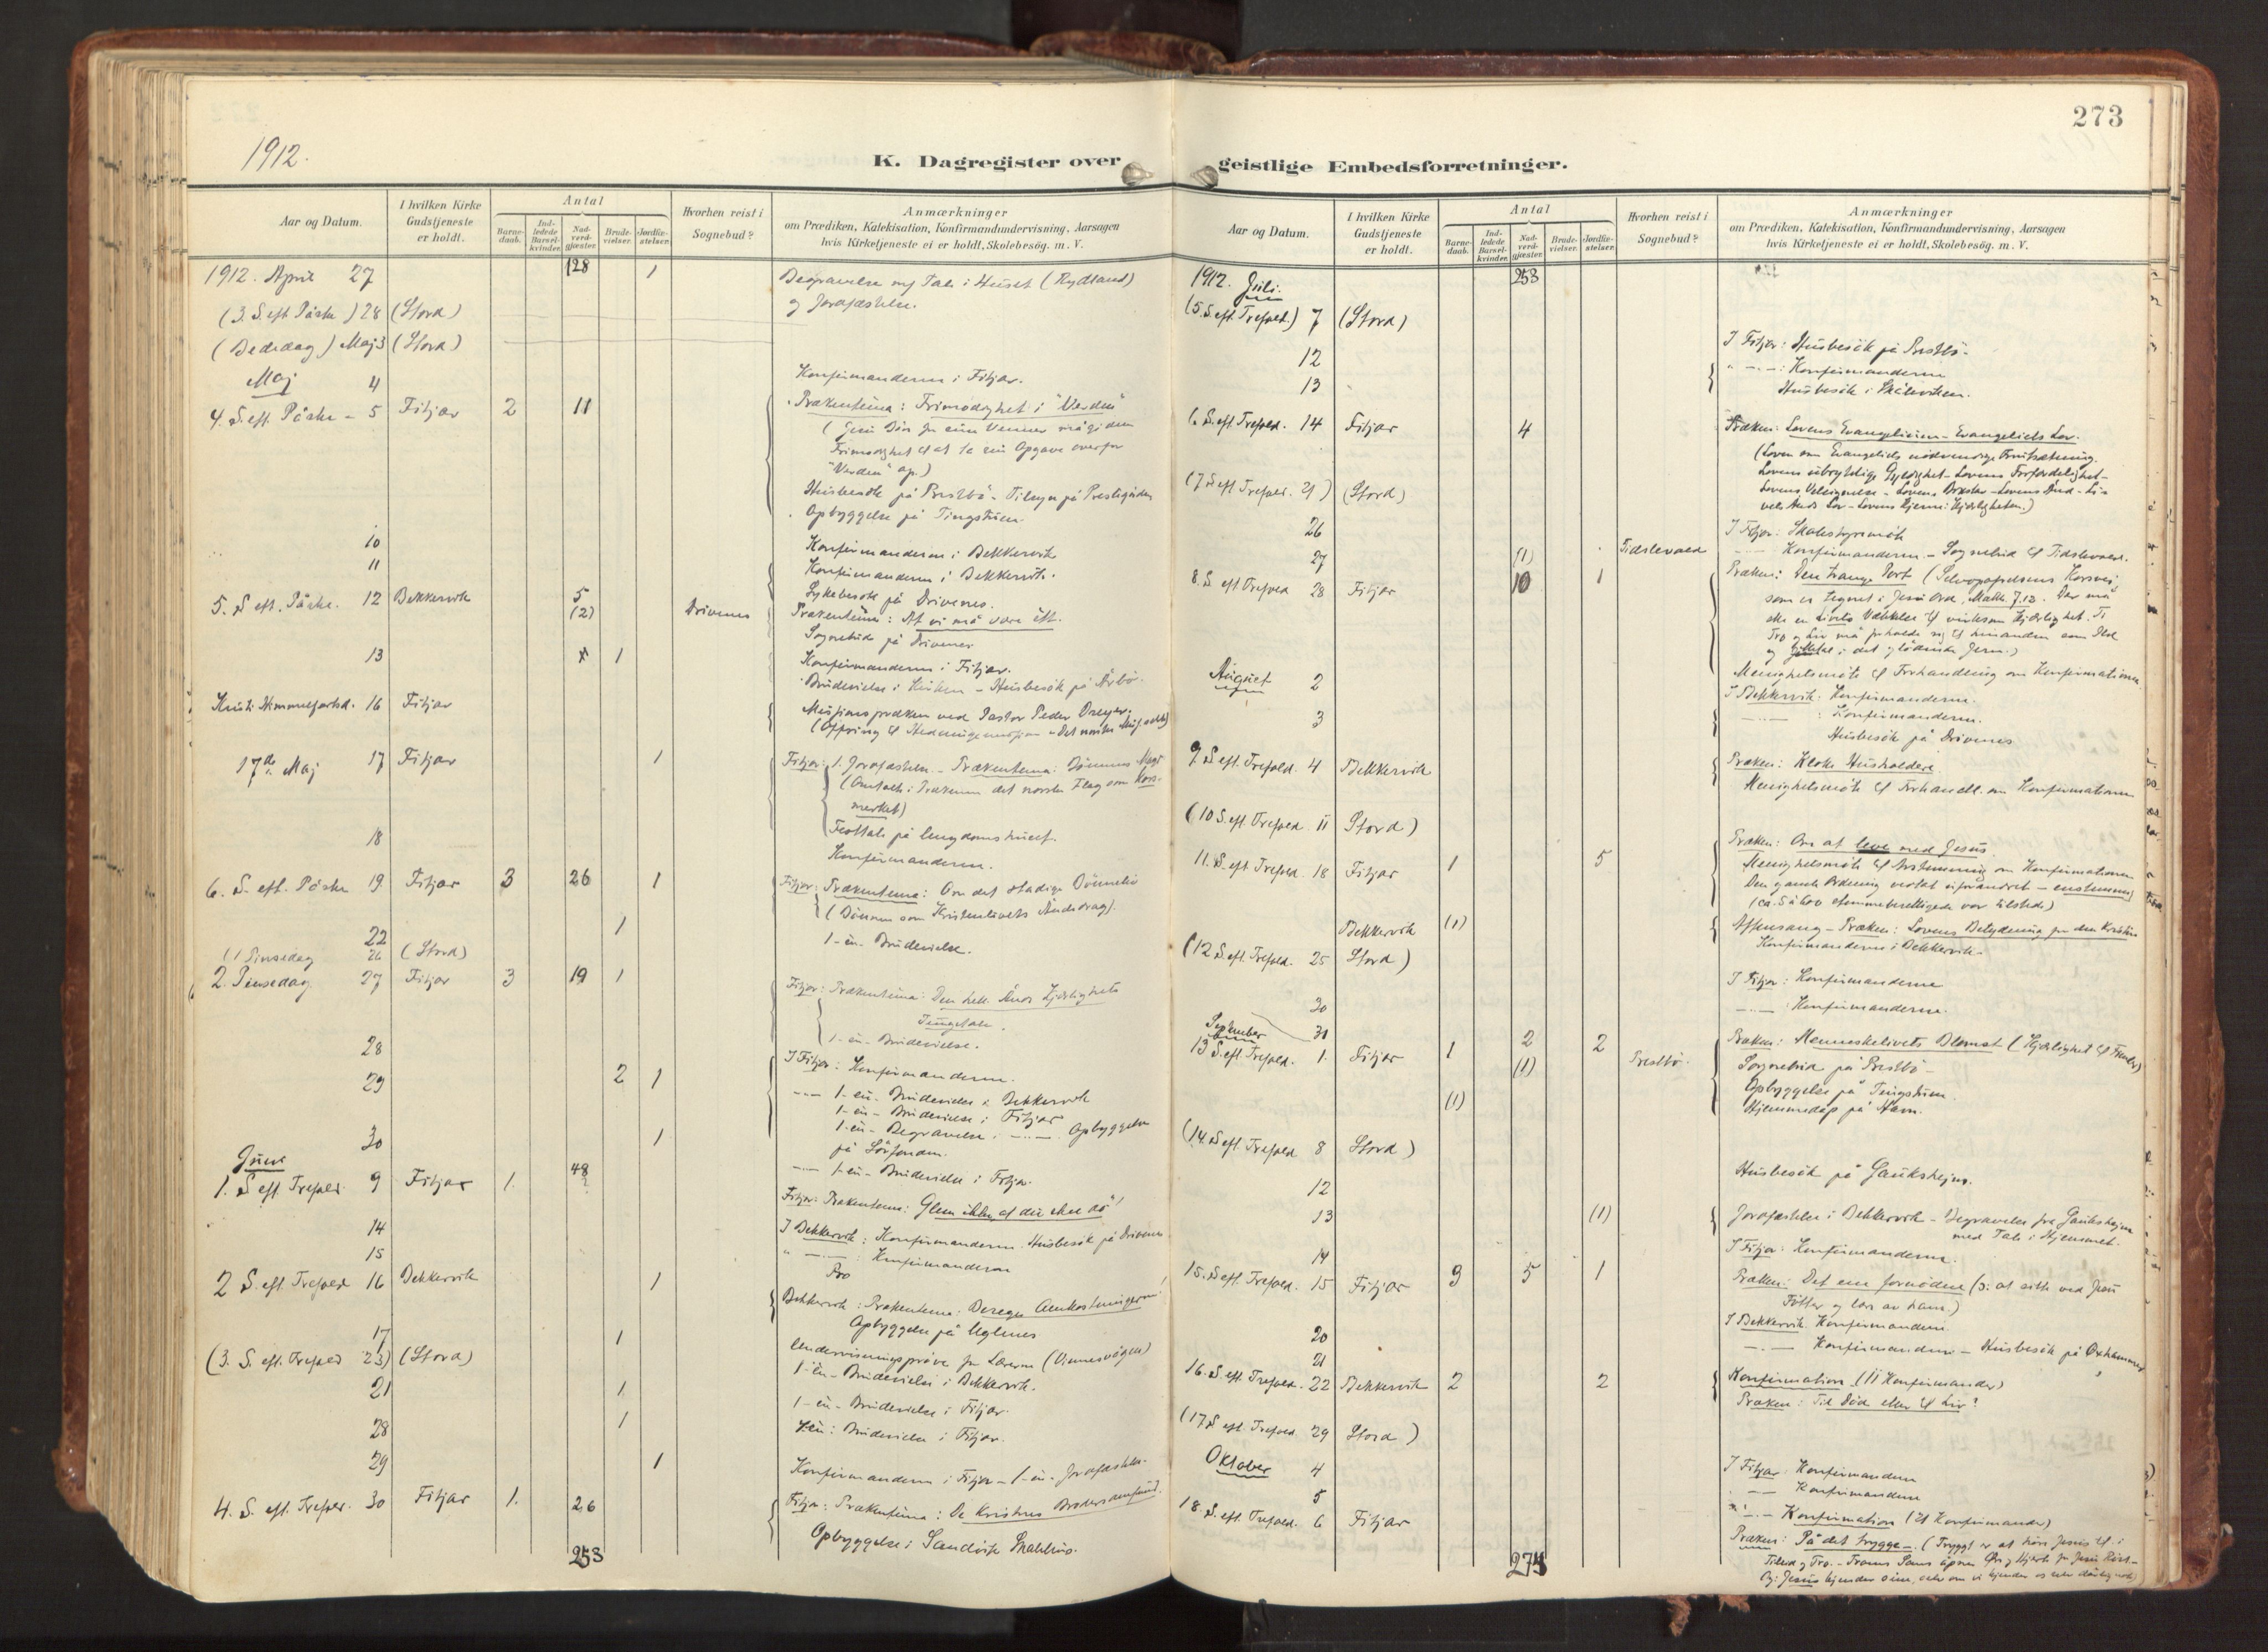 1912.
K. Dagregister over
Aar og Datum.
I hvilken Kirke Gudstjeneste er holdt.
Antal
Barne-daab.
Ind-ledede Barsel-kvinder.
Nad-verd-gjæster.
Brude-vielser.
Jordfæ-stelser.
Hvorhen reist i Sognebud?
Anmærkninger
om Prædiken, Katekisation, Konfirmandundervisning, Aarsagen
hvis Kirketjeneste ei er holdt, Skolebesög. m. V.
1912. April 27 128 1 Begravelse m/ Tale i Huset (Rydland)
og Jordfæstelse.
(3. S. eft. Påske) 28 (Stord)
(Bededag) Maj 3 (Stord)
Maj 4 Konfirmanderne i Fitjar.
4. S. eft. Påske - 5 Fitjar 2 11 Prækentema: Frimodighet i "Verden"
( Jesu Død for sine Venner må gi dem
Frimodighet til at ta sin Opgave overfor
"Verden" op.)
Husbesøk på Prestbø - Tilsyn på Prestegården
Opbyggelse på Tingstuen
10 Konfirmanderne i Bekkervik
11 Konfirmanderne i Bekkervik.
Sykebesøk på Drivenes.
5. S. eft. Påske. 12 Bekkervik 5 (2) Drivenes Prækentema: At vi må være ett.
Sognebud på Drivenes
13 1 Konfirmanderne i Fitjar.
Brudevielse i Kirken - Husbesøk på Årbø.
Kristi Himmelfartsd. 16 Fitjar Missionspræken ved Pastor Peder Dreyer.
17de Maj 17 Fitjar 1 Fitjar: 1. Jordfæstelse - Prækentema: Bønnens Magt
(Omtalte i Prækenen det norske Flag som Kors-
merket)
Festtale på Ungdomshuset.
18 Konfirmanderne.
6. S. eft. Påske 19 Fitjar 3 26 1 Fitjar: Prækentema: Om det stadige Bønneliv
(Bønnen som Kristenlivets Åndedrag).
22 1 1 - en - Brudevielse.
(1 Pinsedag 26 (Stord)
2. Pinsedag 27 Fitjar 3 19 1 Fitjar: Prækentema: Den hell. Ånds Kjærlighets
Tungetale.
1 - en - Brudevielse.
28 I Fitjar: Konfirmanderne.
29 2 1 1 - en - Brudevielse i Bekkervik
1 - en - Brudevielse i Fitjar
1 - en - Begravelse i - Opbyggelse
på Sörfonden.
30 1 1 - en - Brudevielse i Fitjar.
Juni
1. S eft. Trefold. 9 Fitjar 1. 48 Fitjar: Prækentema: Glem ikke, at du skal dö!
14 I Bekkervik: Konfirmanderne. Husbesøk på Drivenes
15 Konfirmanderne
2 S. eft. Trefold 16 Bekkervik 1 Bekkervik: Prækentema: Beregn Omkostningerne!
Opbyggelse på Uglenes
17 1 Undervisningsprøve for Lærerne (Vinnesvågen)
1 - en - Brudevielse i Bekkervik.
(3. S. eft. Trefold 23) (Stord)
21 1 1 - en - Brudevielse i Fitjar.
28 1 1 en: Brudevielse i Fitjar.
29 1 Konfirmanderne i Fitjar - 1 - en - Jordfæstelse.
4. S. eft. Trefold. 30 Fitjar 1. 26 Fitjar: Prækentema: De kristnes Brodersamfund.
Opbyggelse i Sandvik Skolehus.
253
273
geistlige Embedsforretninger.
Aar og Datum.
I hvilken Kirke Gudstjeneste er holdt.
Antal
Barne-daab.
Ind-ledede Barsel-kvinder.
Nad-verd-gjæster.
Brude-vielser.
Jordfæ-stelser.
Hvorhen reist i Sognebud?
Anmærkninger
om Prædiken, Katekisation, Konfirmandundervisning, Aarsagen
hvis Kirketjeneste ei er holdt, Skolebesög. m. V.
1912. Juli. 253
(5. S. eft. Trefold.) 7 (Stord)
12 I Fitjar: Husbesøk på Prestbø.
13 Konfirmanderne
Husbesøk i Skåleviken.
6. S. eft. Trefold. 14 Fitjar 4 Præken: Lovens Evangelium - Evangeliets Lov.
(Loven som Evangeliets nødvendige Forutsætning.
Lovens ubrytelige Gyldighet - Lovens Forfærdelighet -
Lovens Velsignelse - Lovens Bokstav - Lovens Ånd - Li-
vets Ånds Lov - Lovens Kjerne: Kjærligheten.)
(7 S eft Trefold. 21) (Stord)
26 I Fitjar: Skolestyremøte
27 (1) Tislevold Konfirmanderne - Sognebud til Tislevold.
8. S. eft Trefold 28 Fitjar 10 1 Præken: Den trange Port (Selvopofrelsens Korsvei,
som er tegnet i Jesu Ord, Matth. 7.12. Der må
ske en Livets Vækkelse til virksom Kjærlighet. Ti
Tro og Liv må forholde sig til hinanden som Ild
i det glødende Jern.)
Menighetsmøte til Forhandling om Konfirmationen
August 2 I Bekkervik: Konfirmanderne.
3 Konfirmanderne.
Husbesøk på Drivenes
9. S. eft. Trefold. 4 Bekkervik Præken: Kloke Husholdere.
Menighetsmøte til Forhandl. om Konfirmationen
(10 S. eft Trefold 11 Stord)
11. S. eft Trefold. 18 Fitjar 1 5 Præken: Om at leve med Jesus.
Menighetsmøte til Avstemning om Konfirmationen
Den gamle Ordning vedtat uforandret - enstemmig
(ca. 5 à 600 stemmeberettigede var tilstede)
Bekkervik (1) Aftensang - Præken: Lovens Betydning for den Kristne
Konfirmanderne i Bekkervik.
(12 S. eft. Trefold. 25 Stord)
30 I Fitjar: Konfirmanderne
31 Konfirmanderne.
September
13 S. eft. Trefold. 1. Fitjar 1 2 (1) 2 Prestbø. Præken: Menneskelivets Blomst (Kjærlighet til Fienden)
Sognebud på Prestbø -
Opbyggelse på Tingstuen.
(1) Hjemmedåp på Havn.
(14. S eft. Trefold 8 Stord)
12 Husbesøk på Gaukshejm.
13 (1) Jordfæstelse i Bekkervik - Begravelse fra Gaukshejm
med Tale i Hjemmet.
14 I Fitjar: Konfirmanderne.
15. S. eft. Trefold. 15 Fitjar 3 5 1 Præken: Det ene fornødne (ɔ: at sitte ved Jesu
Føtter og lære av ham.)
20 I Bekkervik: Konfirmanderne.
21 Konfirmanderne - Husbesøk på Oxhammer
16. S. eft. Trefold. 22 Bekkervik 2 2 Konfirmation (11 Konfirmander)
Præken: Til Død eller til Liv?
(17 S. eft. Trefold. 29 Stord)
Oktober 4 I Fitjar: Konfirmanderne
5 Konfirmanderne
18. S. eft. Trefold. 6 Fitjar Konfirmation (21 Konfirmander)
Præken: På det trygge -. (Trygt er at høre Jesus til i
274